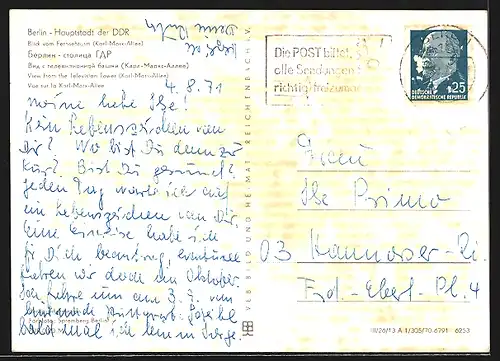 Berlin - Hauptstadt der DDR
Blick vom Fernsehturm (Karl-Marx-Allee)
Берлин - столица ГДР
Вид с телевизионной башни (Карл-Маркс-Аллее)
View from the Television Tower (Karl-Marx-Allee)
Vue sur la Karl-Marx-Allee
4. 8. 71
meine liebe Ilse!
Kein Lebenszeichen von
Dir? Wo bist Du denn zur
Kur? Bist Du gesund?
jeden Tag warte ich auf
ein Lebenszeichen von Dir,
Eine Einreise habe ich
für Dich beantragt, eventuell
haben wir doch den Oktober.
Ich fahre am 3. 9. vom
bald mal ich bin in Sorge.
Die POST bittet,
alle Sendungen
richtig freizumachen
DEUTSCHE
DEMOKRATISCHE REPUBLIK
25
VEB BILD UND HEIMAT REICHENBACH I. V.
Frau
Ilse Primo
03 Hannover-
Fr.-Ebert-Pl. 4
III/26/13 A 1/305/70 6791 6253